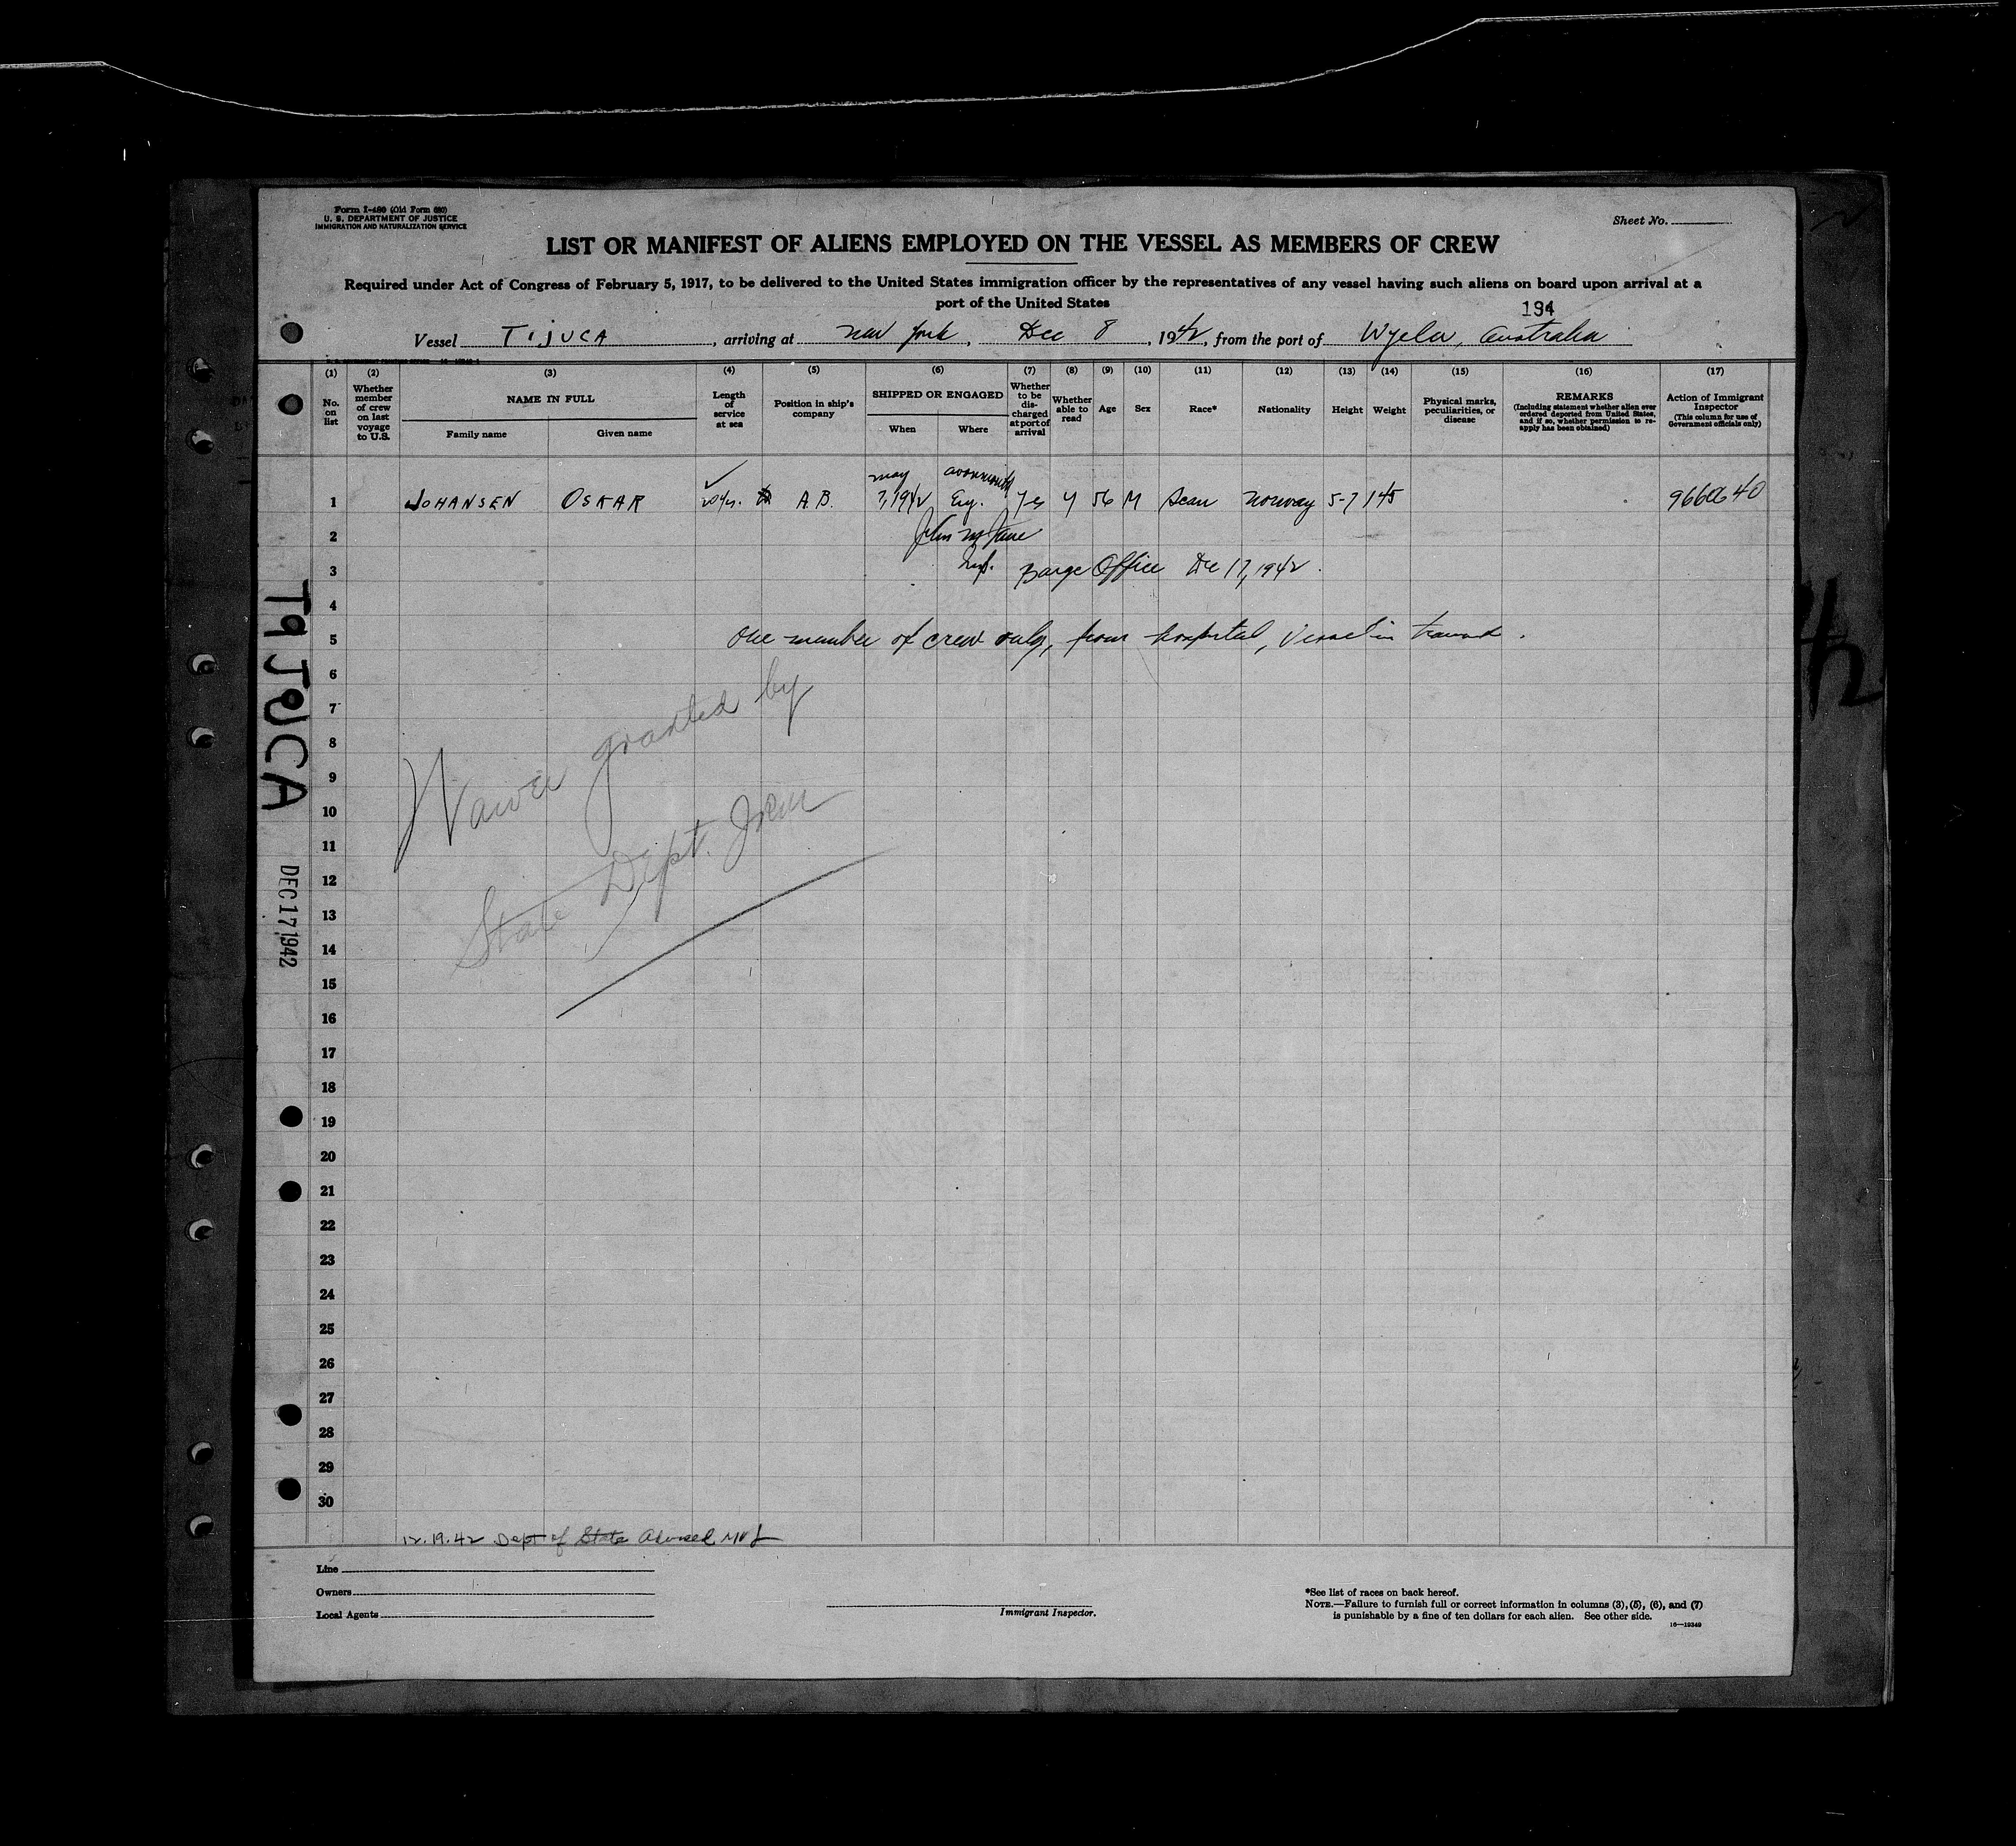 Form I-480 (Old Form 680)
U. S. DEPARTMENT OF JUSTICE
IMMIGRATION AND NATURALIZATION SERVICE
Sheet No.
LIST OR MANIFEST OF ALIENS EMPLOYED ON THE VESSEL AS MEMBERS OF CREW
Required under Act of Congress of February 5, 1917, to be delivered to the United States immigration officer by the representatives of any vessel having such aliens on board upon arrival at a
port of the United States
194
Vessel TIJUCA, arriving at New York, Dec 8, 1942, from the port of Wyela, Australia
(1) (2) (3) (4) (5) (6) (7) (8) (9) (10) (11) (12) (13) (14) (15) (16) (17)
No. on list
Whether member of crew on last voyage to U.S.
NAME IN FULL
Family name
Given name
Length of service at sea
Position in ship's company
SHIPPED OR ENGAGED
When
Where
Whether to be discharged at port of arrival
Whether able to read
Age
Sex
Race*
Nationality
Height
Weight
Physical marks, peculiarities, or disease
REMARKS
(Including statement whether alien ever ordered deported from United States, and if so, whether permission to reapply has been obtained)
Action of Immigrant Inspector
(This column for use of Government officials only)
May
1 JOHANSEN OSKAR 20 yrs. A.B. 7, 1942 Eng. Yes Y 56 M Scan Norway 5-7 145
2 John
3 Insp. Barge Office Dec 17, 1942.
4
5 One member of crew only, from hospital, Vessel in
6
7
8
9
10
11
12
13
14
15
16
17
18
19
20
21
22
23
24
25
26
27
28
29
30
Waiver granted by
State Dept.
TIJUCA
DEC 17 1942
12.19.42 Dept of State Advised
Line
Owners
Local Agents
Immigrant Inspector.
*See list of races on back hereof.
NOTE.—Failure to furnish full or correct information in columns (3), (5), (6), and (7)
is punishable by a fine of ten dollars for each alien. See other side.
16—19349